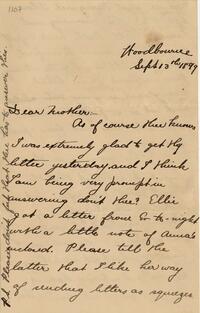 1107
Woodbourne
Sept 13th 1899
Dear Mother:-
As of course thee knows
I was extremely glad to get thy
letter yesterday, and I think
I am being very prompt in
answering don't thee? Ellie
got a letter from to-night
with a little note of Anna's
enclosed. Please tell the
latter that I like her way
of sending letters as squeezes
P.S. Please don't that thee has to answer this.